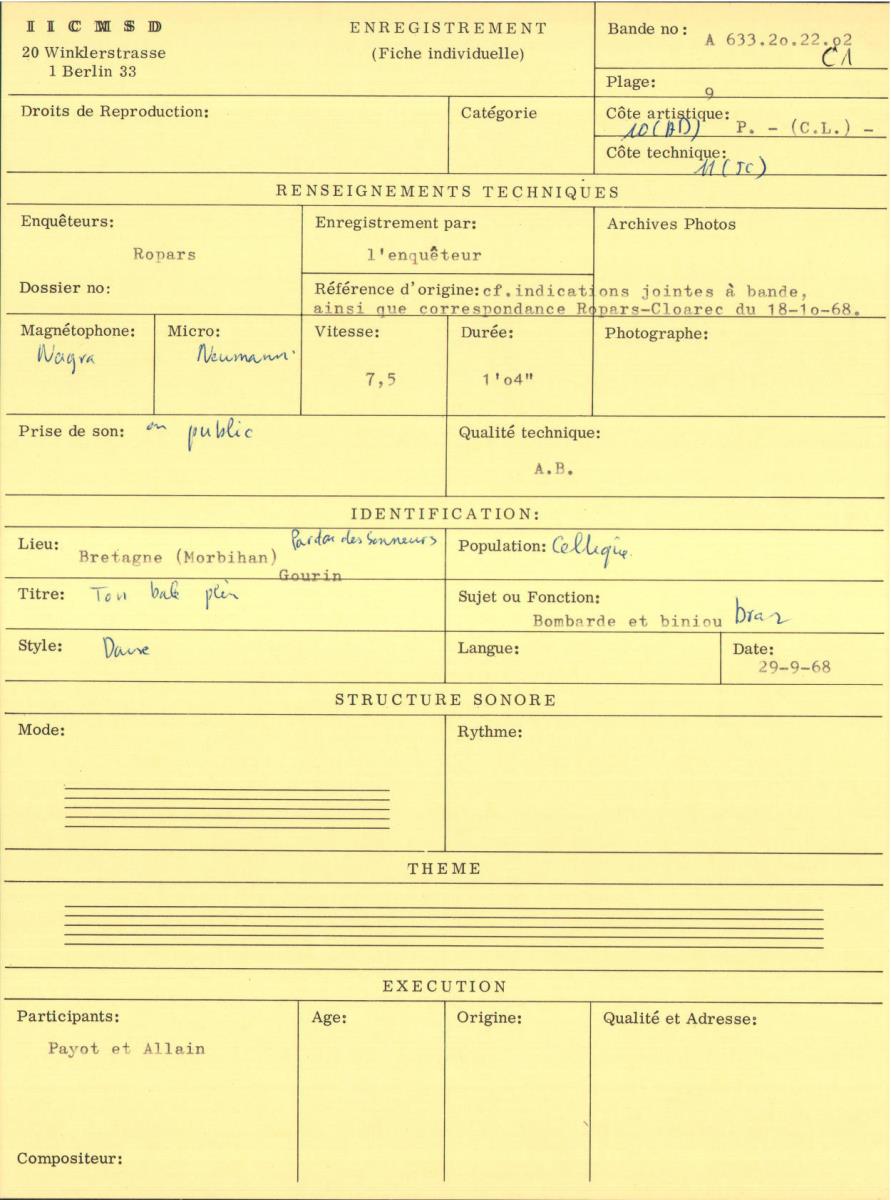 I I C M S D
20 Winklerstrasse
1 Berlin 33
ENREGISTREMENT
(Fiche individuelle)
Bande no : A 633.2o.22.o2
C1
Plage: 9
Droits de Reproduction:
Catégorie
Côte artistique:
10(AD) P. - (C.L.) -
Côte technique:
11(JC)
RENSEIGNEMENTS TECHNIQUES
Enquêteurs:
Ropars
Dossier no:
Enregistrement par:
l'enquêteur
Archives Photos
Référence d'origine: cf.indications jointes à bande,
ainsi que correspondance Ropars-Cloarec du 18-1o-68.
Magnétophone:
Nagra
Micro:
Neumann
Vitesse:
7,5
Durée:
1'o4"
Photographe:
Prise de son: en public
Qualité technique:
A.B.
IDENTIFICATION:
Lieu: Pardon des Sonneurs
Bretagne (Morbihan)
Gourin
Population: Celtique
Titre: Ton bale plin
Sujet ou Fonction:
Bombarde et biniou braz
Style: Danse
Langue:
Date:
29-9-68
STRUCTURE SONORE
Mode:
Rythme:
THEME
EXECUTION
Participants:
Payot et Allain
Age:
Origine:
Qualité et Adresse:
Compositeur: